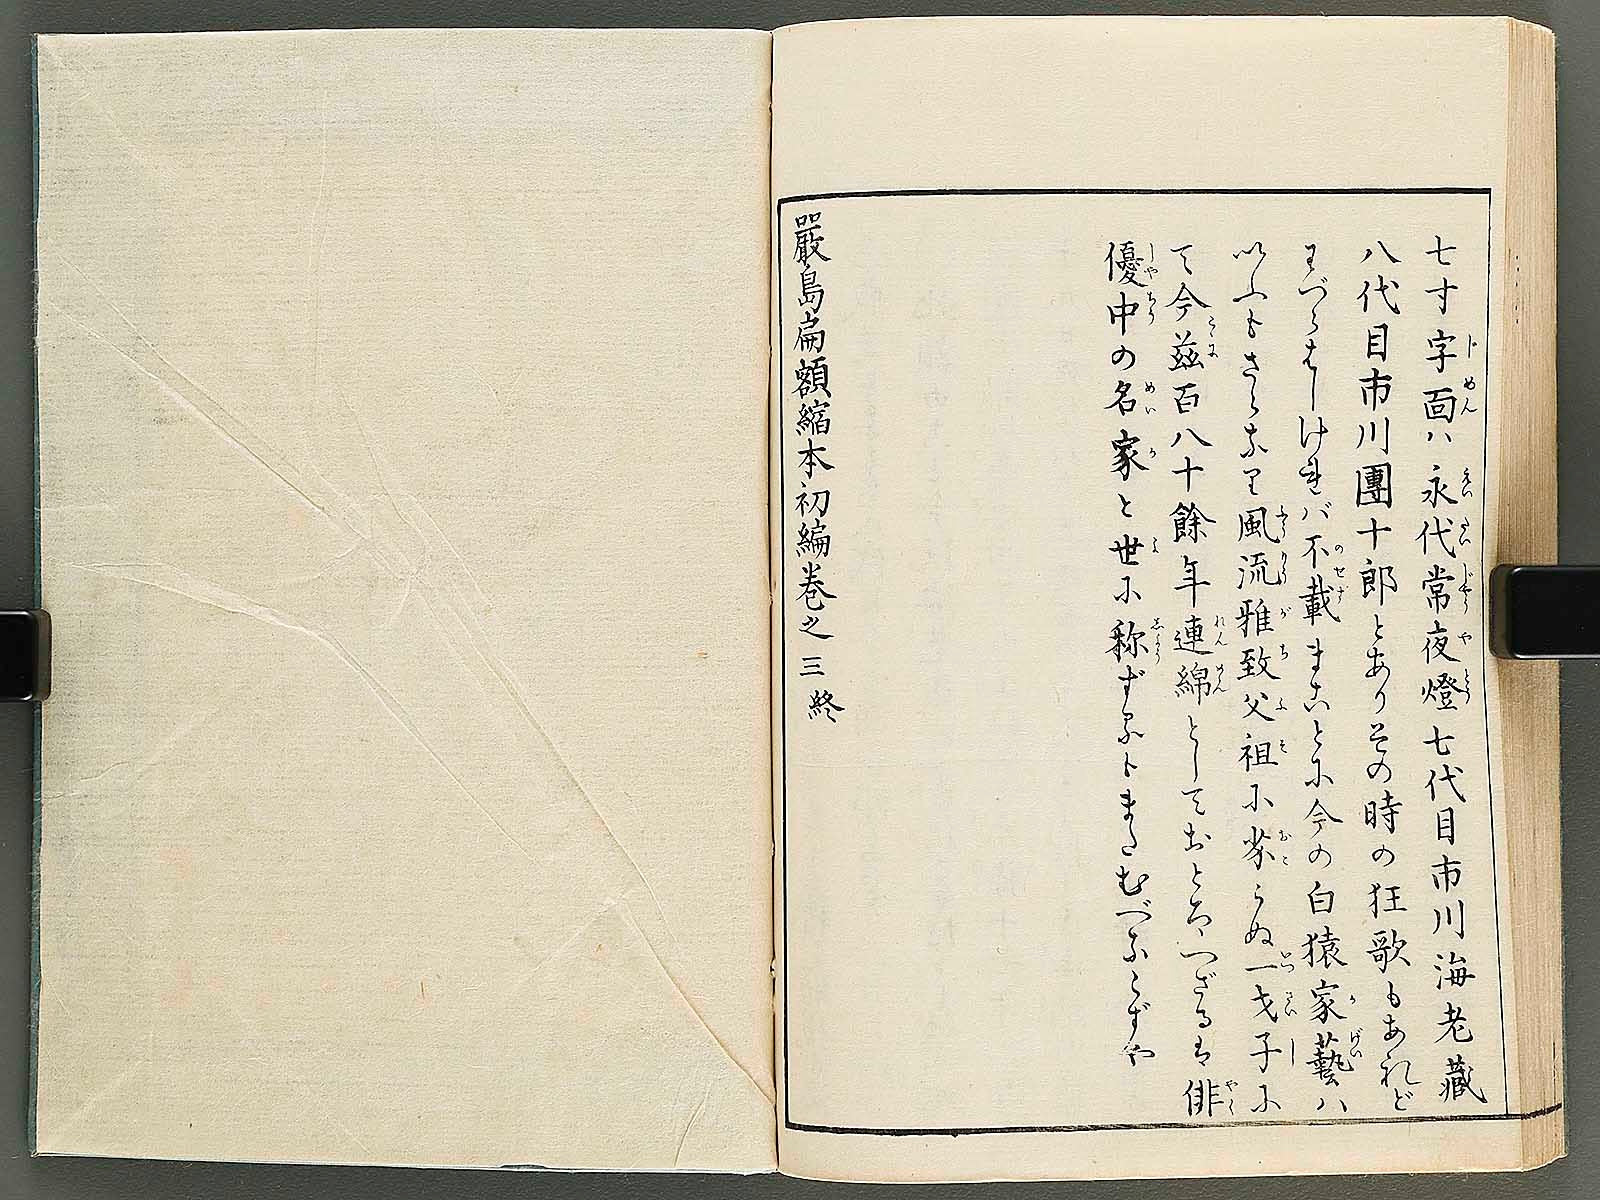 七寸字面ハ永代常夜燈七代目市川海老藏
八代目市川團十郎とありその時の狂歌もあれど
わづらはしければ不載まことに今の白猿家藝ハ
いふもさらなり風流雅致父祖に劣らぬ一才子に
て今茲百八十餘年連綿としておとろへざるは俳
優中の名家と世に称ずるもまたむべならずや
嚴島扁額縮本初編巻之三終